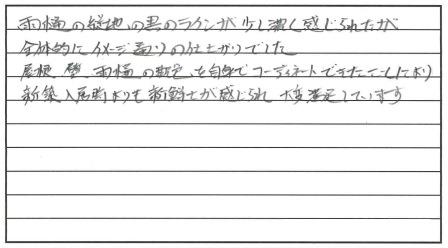 雨樋の縦地の黒のラインが少し濃く感じられたが
全体的にイメージ通りの仕上がりでした
屋根、壁、雨樋の配色を自身でコーディネートできたことにより
新築入居時よりも新鮮さが感じられ大変満足しています